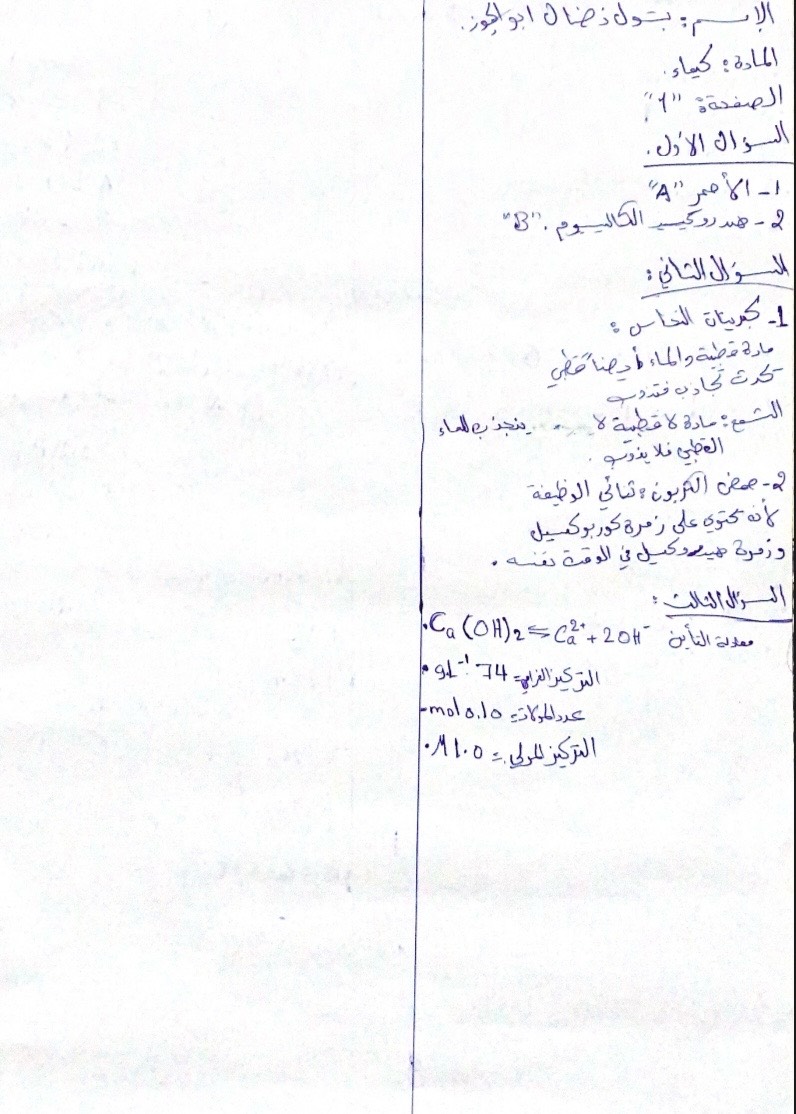 الإسم: بتول نضال ابو الجوز.
المادة: كيمياء.
الصفحة: "1"
السؤال الأول.
1- الأحمر "A"
2- هيدروكسيد الكالسيوم. "B"
السؤال الثاني:
1- كبريتات النحاس:
مادة قطبية والماء أيضاً قطبي
تحدث تجاذب فتذوب
الشمع: مادة لا قطبية لا ينجذب للماء
القطبي فلا يذوب.
2- حمض الكربون: ثنائي الوظيفة
لأنه تحتوي على زمرة كوربوكسيل
وزمرة هيدروكسيل في الوقت نفسه.
السؤال الثالث:
معادلة التأين Ca(OH)2 ⇌ Ca2+ + 2OH-.
التركيز الغرامي = 74 gL-1.
عدد المولات = 0.10 mol.
التركيز المولي = 1.0 M.